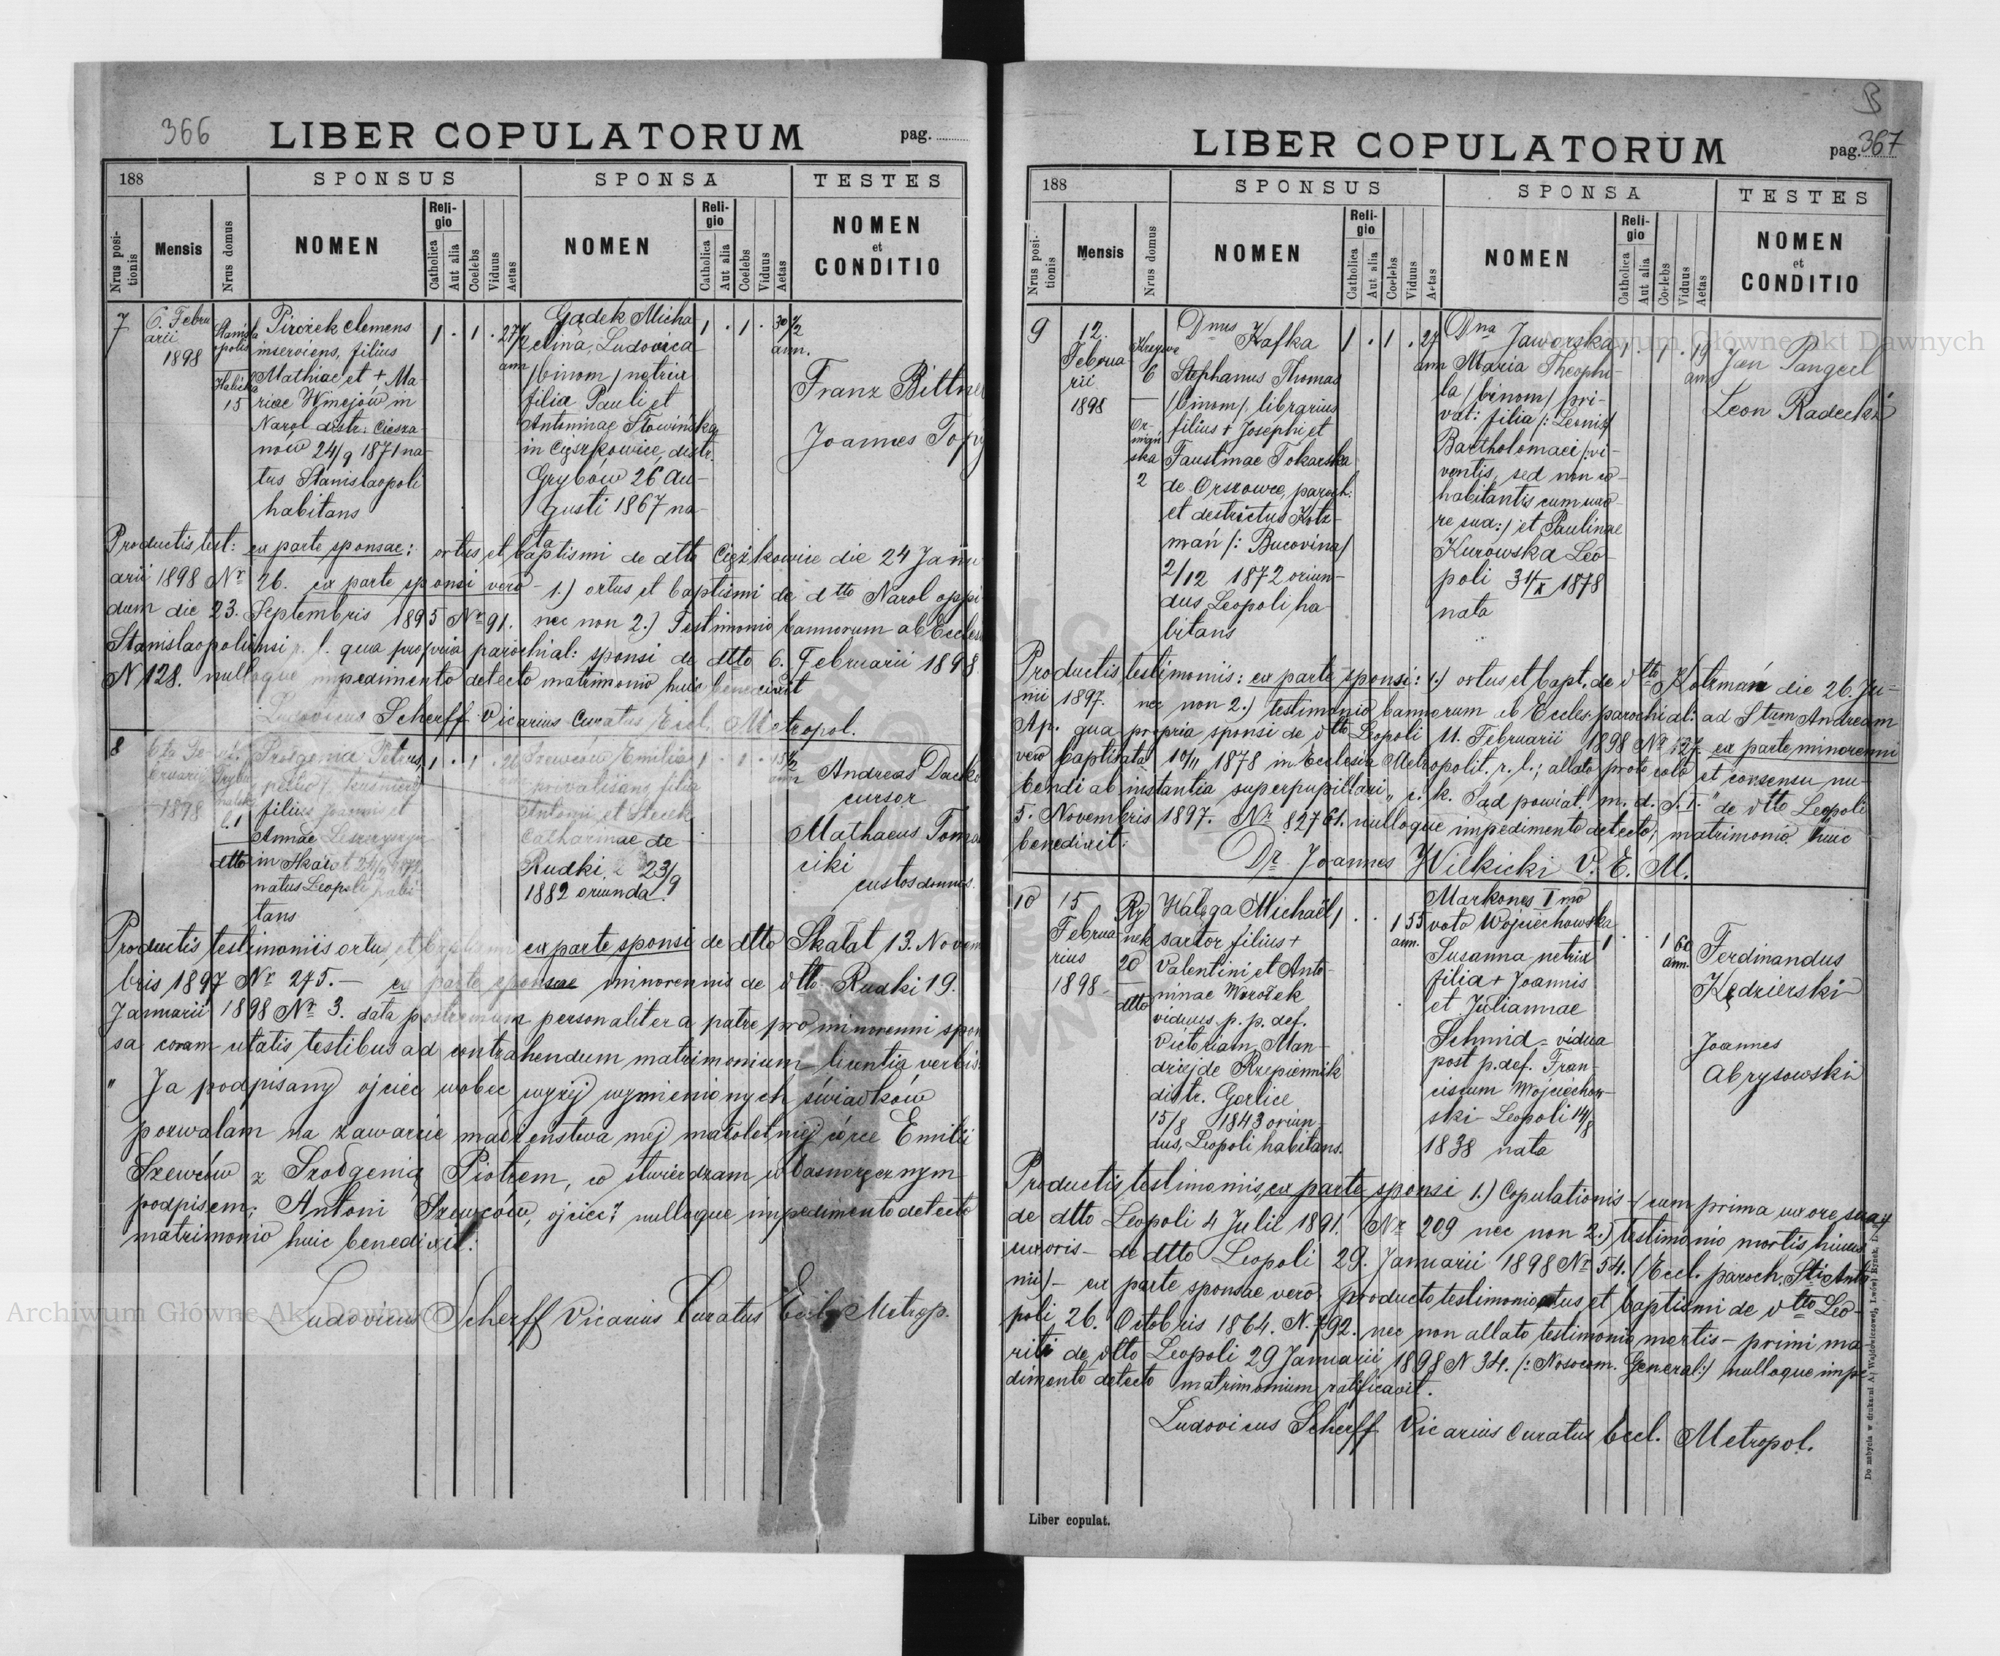 366
LIBER COPULATORUM
pag.
188
SPONSUS
SPONSA
TESTES
Nrus positionis
Mensis
Nrus domus
NOMEN
Religio
Catholica
Aut alia
Coelebs
Viduus
Aetas
NOMEN
Religio
Catholica
Aut alia
Coelebs
Viduus
Aetas
NOMEN
et
CONDITIO
7
6. Febru
arii
1898
15
Clemens
inserviens, filius
Mathiae et + Ma-
riae
Narol distr. Ciesza-
nów 24/9 1871 na-
tus Stanislaopoli
habitans
1 . 1 . 27
Gądek Micha
elina, Ludovica
/binom/ netrix
filia Pauli et
Antoninae Słowińska
in Ciężkowice, distr.
Grybów 26 Au-
gusti 1867 na-
ta
1 . 1 . 30 1/2
ann.
Franz Bittner
Joannes
Productis test: ex parte sponsae: ortus et baptismi de dtto Ciężkowice die 24 Janu
arii 1898 Nr 26. ex parte sponsi vero - 1.) ortus et baptismi de dtto Narol oppi
dum die 23. Septembris 1895 Nr 91. nec non 2.) Testimonio bannorum ab Eccles
Stanislaopoliensi r. l. qua propria parochial: sponsi de dtto 6. Februarii 1898
N 128. nulloque impedimento detecto matrimonio huic benedixit
Ludovicus Scherff Vicarius Curatus Eccl. Metropol.
8
1898
dtto
Petrus
filius Joannis et
Annae
in Skałat
natus Leopoli habi
tans
1 . 1 .
Szewców Emilia
privatisans, filia
Antonii et
Catharinae de
Rudki, 23/9
1882 oriunda
Andreas
cursor
Mathaeus
custos domus.
Productis testimoniis ortus et baptismi ex parte sponsi de dtto Skałat 13. Novem
bris 1897 Nr 275. - ex parte sponsae minorennis de dtto Rudki 19.
Januarii 1898 Nr 3. data postremum personaliter a patre pro minorenni spon
sa coram citatis testibus ad contrahendum matrimonium licentia verbis:
" Ja podpisany ojciec wobec wyżej wymienionych świadków
pozwalam na zawarcie małżeństwa mej małoletniej córce Emilii
Szewców z Piotrem, co stwierdzam własnoręcznym
podpisem; Antoni Szewców, ojciec" nulloque impedimento detecto
matrimonio huic benedixit:
Ludovicus Scherff Vicarius Curatus Eccl. Metrop.
Archiwum Główne Akt Dawnych
LIBER COPULATORUM
pag. 367
188
SPONSUS
SPONSA
TESTES
Nrus positionis
Mensis
Nrus domus
NOMEN
Religio
Catholica
Aut alia
Coelebs
Viduus
Aetas
NOMEN
Religio
Catholica
Aut alia
Coelebs
Viduus
Aetas
NOMEN
et
CONDITIO
Archiwum Główne Akt Dawnych
9
12.
Februa
rii
1898
6
2
Dnus Kafka
Stephanus Thomas
/binom/, librarius
filius + Josephi et
Faustinae Tokarska
de paroch.
et destrictus Kotz-
mań /: Bucovina/
2/12 1872 oriun-
dus Leopoli ha-
bitans
1 . 1 . 27
ann
Dna Jaworska
Maria Theophi-
la /binom/ pri-
vat: filia /: Leonis
Bartholomaei /: vi-
ventis, sed non co-
habitantis cum uxo-
re sua:/ et Paulinae
Kurowska Leo-
poli 31/X 1878
nata
1 . 1 . 19
ann
Jan Pangeel
Leon Radecki
Productis testimoniis: ex parte sponsi: 1.) ortus et bapt. de dtto Kotzmán die 26. Ju-
nii 1897. nec non 2.) testimonio bannorum ab Eccles. parochial: ad Stum Andream
Ap. qua propria sponsi de dtto Leopoli 11. Februarii 1898 Nr 127. ex parte minorenni
vero baptisata 10/11 1878 in Ecclesia Metropolit. r. l.; allato protocolo et consensu nu-
bendi ab instantia superpupillari „c. k. Sąd powiat. m. d. S. I." de dtto Leopoli
5. Novembris 1897. Nr 82761. nulloque impedimento detecto; matrimonio huic
benedixit:
Dr. Joannes Wilkicki V. E. M.
10
15
Februa
rius
1898
Ry
nek
20
dtto
Michaël
sartor filius +
Valentini et Anto-
ninae
viduus p. p. def.
Victoriam Man-
dziej de Rzepiennik
distr. Gorlice
15/8 1843 oriun-
dus, Leopoli habitans.
1 . . 1 55
ann.
Markones I mo
voto Wojciechowska
Susanna netrix
filia + Joannis
et Juliannae
Schmid - vidua
post p. def. Fran-
ciscum Wojciechow-
ski Leopoli 14/8
1838 nata
1 . . 1 60
ann.
Ferdinandus
Kędzierski
Joannes
Abrysowski
Productis testimoniis, ex parte sponsi 1.) Copulationis - (cum prima uxore sua)
de dtto Leopoli 4 Julii 1891. Nr 209 nec non 2.) testimonio mortis hujus
uxoris - de dtto Leopoli 29. Januarii 1898 Nr 54. (Eccl. paroch. Sti Anto
nii) - ex parte sponsae vero, producto testimonio ortus et baptismi de dtto Leo-
poli 26. Octobris 1864. N. 792. nec non allato testimonio mortis - primi ma-
riti de dtto Leopoli 29 Januarii 1898 N 34. (: Nosocom. General:) nulloque impe
dimento detecto matrimonium ratificavit.
Ludovicus Scherff Vicarius Curatus Eccl. Metropol.
Liber copulat.